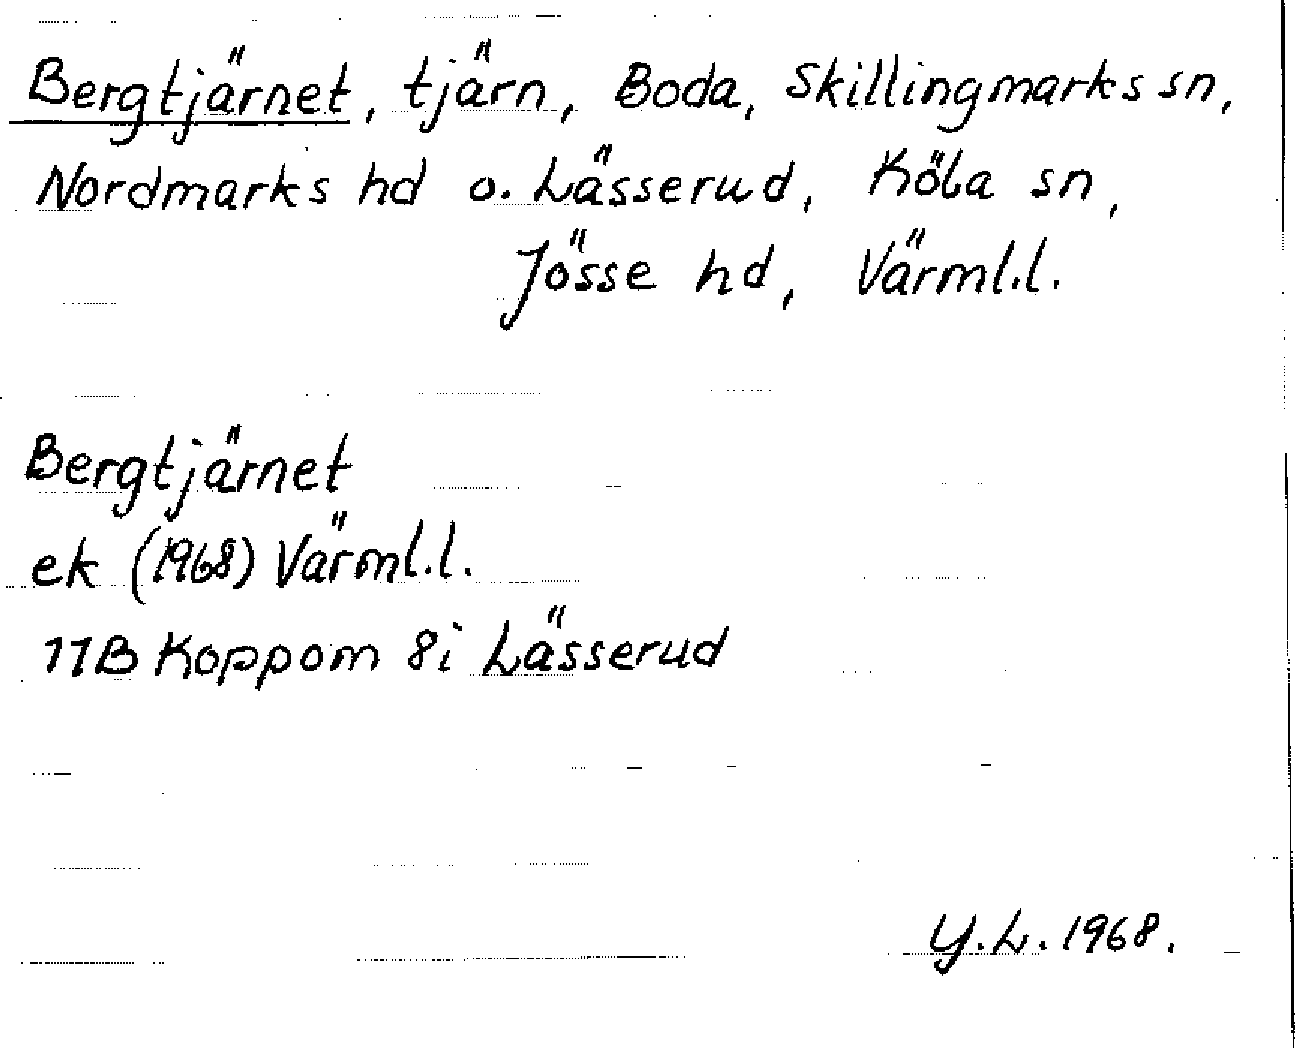 Bergtjärnet, tjärn, Boda, Skillingmarks sn,
Nordmarks hd o. Lässerud, Köla sn,
Jösse hd, Värml.l.
Bergtjärnet
ek (1968) Värml.l.
11B Koppom 8i Lässerud
Y.L. 1968.